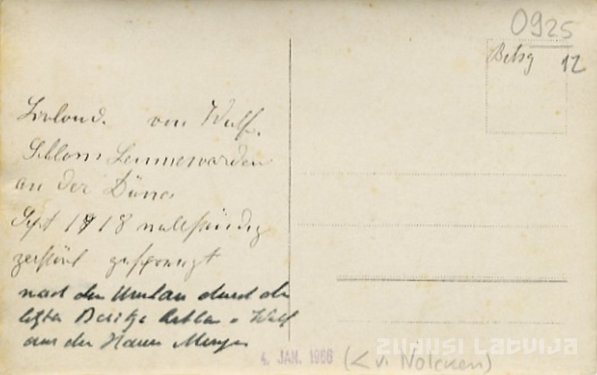 0925
Belzg 12
Livland. von Wulf.
Schloss Lennewarden
an der Düna
Sept 1918 vollständig
zerstört gesprengt
nach dem Umbau durch die
letzten Besitzer v. Wulf
aus dem Hause
4. JAN. 1966 (< v. Nolcken)
ZUDUSI LATVIJA